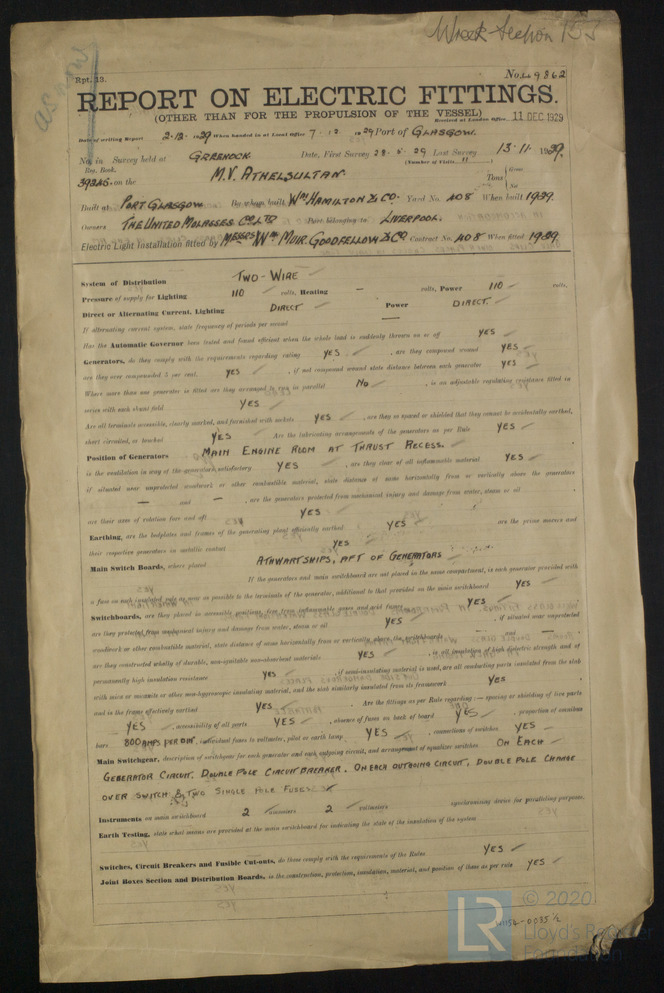 Wreck Section 153
as now
Rpt. 13.
No. 49862
REPORT ON ELECTRIC FITTINGS.
(OTHER THAN FOR THE PROPULSION OF THE VESSEL)
Received at London Office 11 DEC 1929
Date of writing Report 2.12.1929 When handed in at Local Office 7.12.1929 Port of GLASGOW.
No. in Survey held at GREENOCK. Date, First Survey 28.5.29 Last Survey 13.11.1929.
Reg. Book. (Number of Visits 11)
39345. on the M.V. ATHELSULTAN. Tons Gross Net
Built at PORT GLASGOW By whom built Wm. HAMILTON & CO. Yard No. 408 When built 1929.
Owners THE UNITED MOLASSES CO. LTD Port belonging to LIVERPOOL.
Electric Light Installation fitted by MESSRS Wm MUIR, GOODFELLOW & CO. Contract No. 408 When fitted 1929
System of Distribution TWO-WIRE
Pressure of supply for Lighting 110 volts, Heating — volts, Power 110 volts,
Direct or Alternating Current, Lighting DIRECT Power DIRECT.
If alternating current system, state frequency of periods per second
Has the Automatic Governor been tested and found efficient when the whole load is suddenly thrown on or off YES
Generators, do they comply with the requirements regarding rating YES, are they compound wound YES
are they over compounded 5 per cent. YES, if not compound wound state distance between each generator YES
Where more than one generator is fitted are they arranged to run in parallel No, is an adjustable regulating resistance fitted in
series with each shunt field YES
Are all terminals accessible, clearly marked, and furnished with sockets YES, are they so spaced or shielded that they cannot be accidentally earthed,
short circuited, or touched YES Are the lubricating arrangements of the generators as per Rule YES
Position of Generators MAIN ENGINE ROOM AT THRUST RECESS.
is the ventilation in way of the generators satisfactory YES, are they clear of all inflammable material YES
if situated near unprotected woodwork or other combustible material, state distance of same horizontally from or vertically above the generators
— and —, are the generators protected from mechanical injury and damage from water, steam or oil
are their axes of rotation fore and aft YES
Earthing, are the bedplates and frames of the generating plant efficiently earthed YES are the prime movers and
their respective generators in metallic contact YES
Main Switch Boards, where placed ATHWARTSHIPS, AFT OF GENERATORS
If the generators and main switchboard are not placed in the same compartment, is each generator provided with
a fuse on each insulated pole as near as possible to the terminals of the generator, additional to that provided on the main switchboard YES
Switchboards, are they placed in accessible positions, free from inflammable gases and acid fumes YES
are they protected from mechanical injury and damage from water, steam or oil YES, if situated near unprotected
woodwork or other combustible material, state distance of same horizontally from or vertically above the switchboards — and —
are they constructed wholly of durable, non-ignitable non-absorbent materials YES, is all insulation of high dielectric strength and of
permanently high insulation resistance YES, if semi-insulating material is used, are all conducting parts insulated from the slab
with mica or micanite or other non-hygroscopic insulating material, and the slab similarly insulated from its framework YES
and is the frame effectively earthed YES. Are the fittings as per Rule regarding:— spacing or shielding of live parts
YES, accessibility of all parts YES, absence of fuses on back of board YES, proportion of omnibus
bars 800 AMPS PER □", individual fuses to voltmeter, pilot or earth lamp YES, connections of switches YES
Main Switchgear, description of switchgear for each generator and each outgoing circuit, and arrangement of equalizer switches ON EACH
GENERATOR CIRCUIT, DOUBLE POLE CIRCUIT BREAKER. ON EACH OUTGOING CIRCUIT, DOUBLE POLE CHANGE
OVER SWITCH & TWO SINGLE POLE FUSES
Instruments on main switchboard 2 ammeters 2 voltmeters synchronising device for paralleling purposes.
Earth Testing, state what means are provided at the main switchboard for indicating the state of the insulation of the system
Switches, Circuit Breakers and Fusible Cut-outs, do these comply with the requirements of the Rules YES
Joint Boxes Section and Distribution Boards, is the construction, protection, insulation, material, and position of these as per rule YES
W1154-0035 1/2
LR
© 2020
Lloyd's Register
Foundation